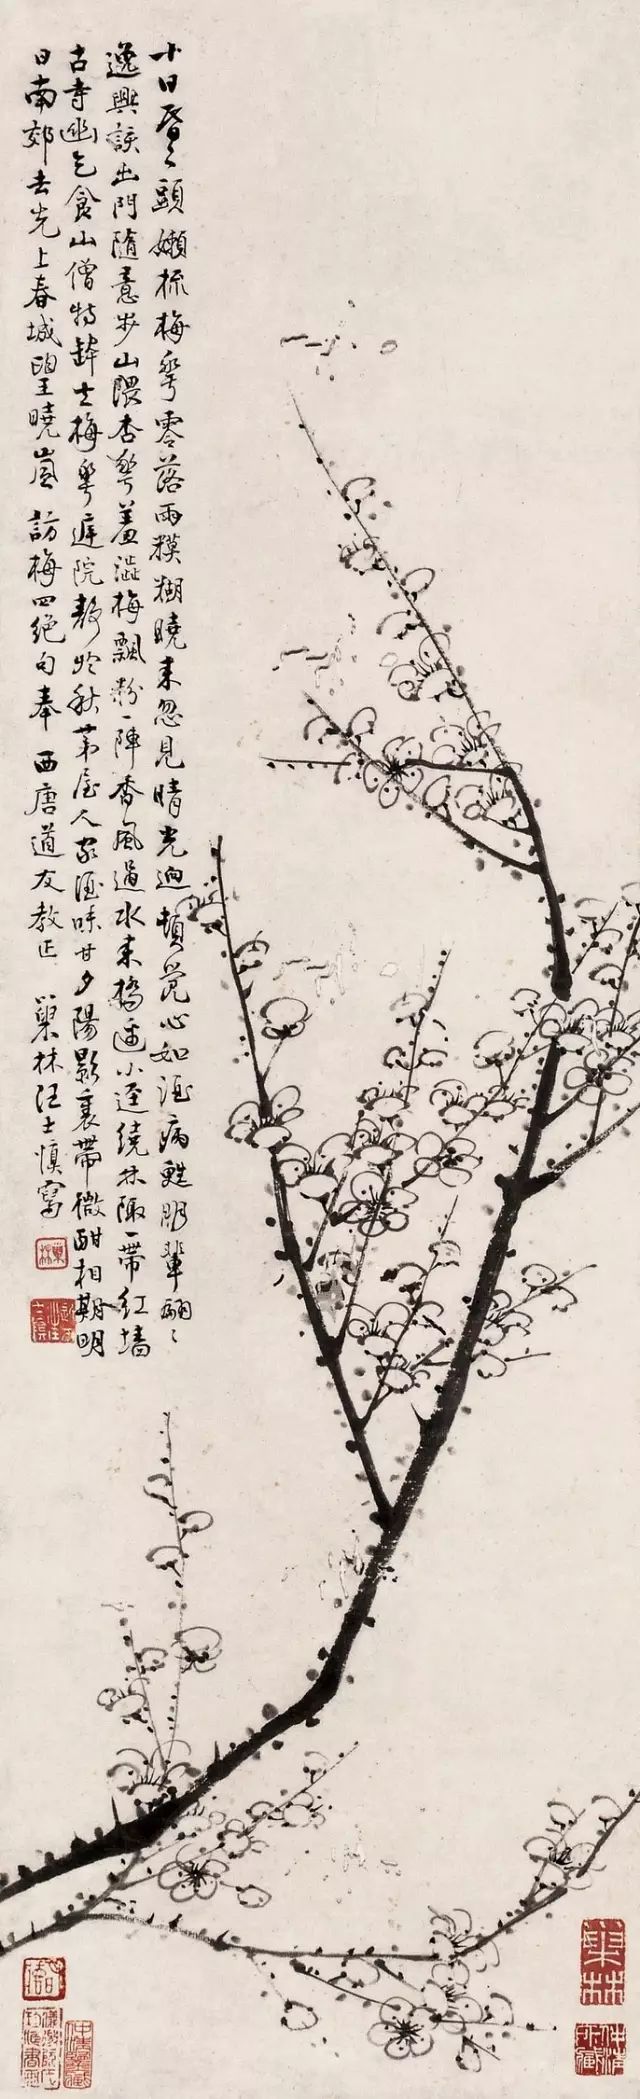 十日昏昏頭嬾梳梅花零落雨糢糊曉来忽見晴光迥頓覺心如酒病甦朋輩翩翩
逸興該出門隨意步山隈杏花羞澀梅飄粉一陣香風過水来橋邊小逕繞林陬一帶紅墻
古寺幽乞食山僧持鉢去梅花遶院静於秋茅屋人家酒味甘夕陽影裏帶微酣相期明
日南郊去先上春城望曉嵐 訪梅四絕句奉 西唐道友教正 巢林汪士慎寫
巢林